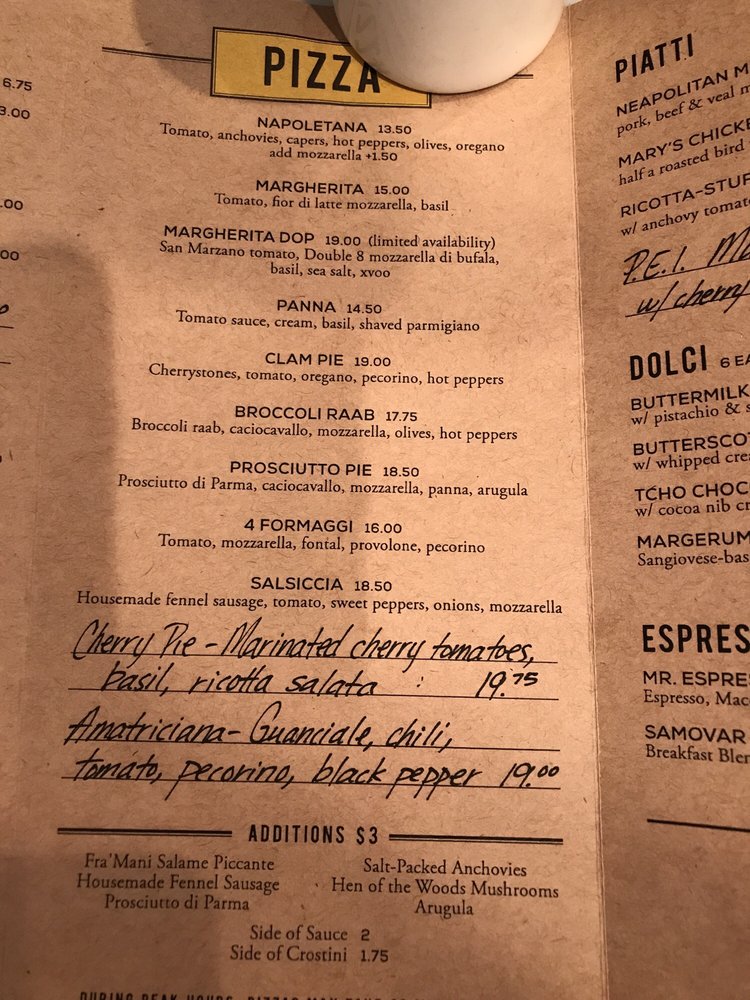 6.75
3.00
.00
PIZZA
NAPOLETANA 13.50
Tomato, anchovies, capers, hot peppers, olives, oregano
add mozzarella +1.50
MARGHERITA 15.00
Tomato, fior di latte mozzarella, basil
MARGHERITA DOP 19.00 (limited availability)
San Marzano tomato, Double 8 mozzarella di bufala,
basil, sea salt, xvoo
PANNA 14.50
Tomato sauce, cream, basil, shaved parmigiano
CLAM PIE 19.00
Cherrystones, tomato, oregano, pecorino, hot peppers
BROCCOLI RAAB 17.75
Broccoli raab, caciocavallo, mozzarella, olives, hot peppers
PROSCIUTTO PIE 18.50
Prosciutto di Parma, caciocavallo, mozzarella, panna, arugula
4 FORMAGGI 16.00
Tomato, mozzarella, fontal, provolone, pecorino
SALSICCIA 18.50
Housemade fennel sausage, tomato, sweet peppers, onions, mozzarella
Cherry Pie - Marinated cherry tomatoes,
basil, ricotta salata 19.75
Amatriciana - Guanciale, chili,
tomato, pecorino, black pepper 19.00
ADDITIONS $3
Fra'Mani Salame Piccante
Housemade Fennel Sausage
Prosciutto di Parma
Salt-Packed Anchovies
Hen of the Woods Mushrooms
Arugula
Side of Sauce 2
Side of Crostini 1.75
PIATTI
NEAPOLITAN M
pork, beef & veal m
MARY'S CHICKE
half a roasted bird
RICOTTA-STUF
w/ anchovy tomato
P.E.I. M
w/ cherry
DOLCI 6 EA
BUTTERMILK
w/ pistachio & s
BUTTERSCOT
w/ whipped cre
TCHO CHOC
w/ cocoa nib cr
MARGERUM
Sangiovese-bas
ESPRES
MR. ESPRES
Espresso, Mac
SAMOVAR
Breakfast Blen